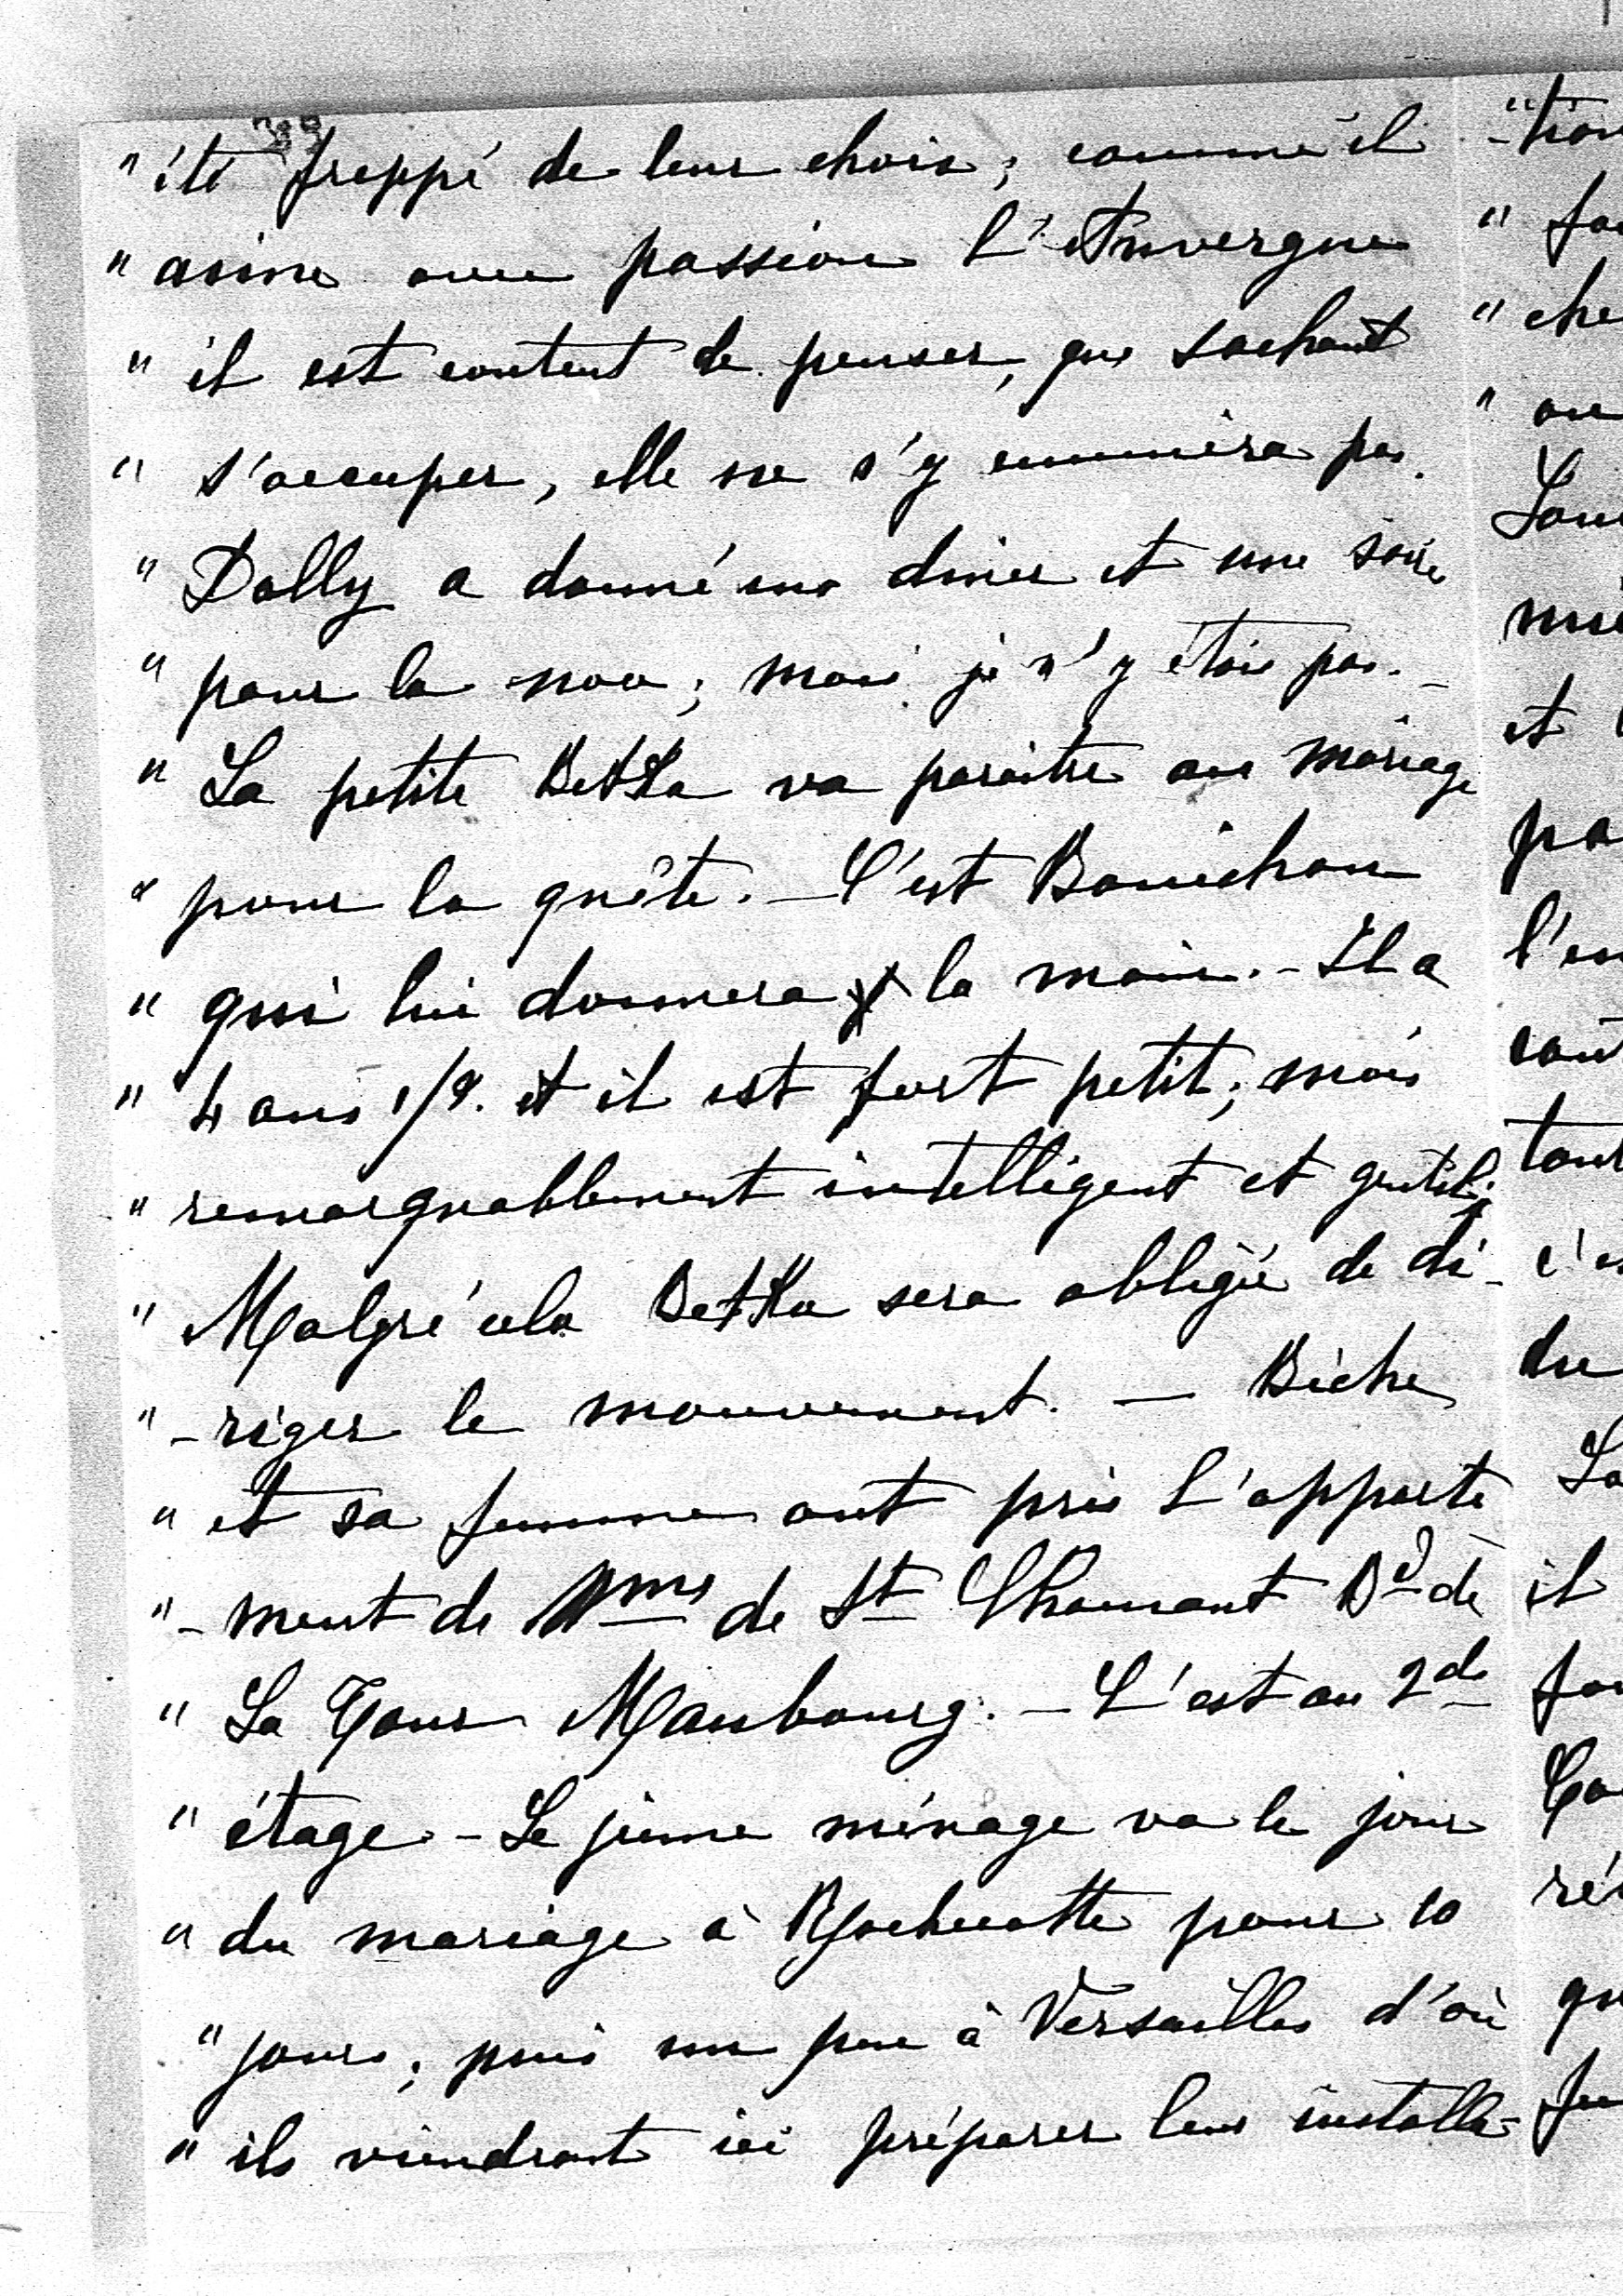 " été frappé de leur choix ; comme il
" aime avec passion l'Auvergne
" il est content de penser, que sachant
" s'occuper, elle ne s'y ennuiera pas.
" Dolly a donné un diner et une soirée
" pour la noce ; mais je n'y étais pas. _
" La petite Betka va paraitre au mariage
" pour la quête. _ C'est Bonichon
" qui lui donnera la main. - Il a
" 4 ans 1/2. et il est fort petit ; mais
" remarquablement intelligent et gentil ;
" Malgré cela Betka sera obligée de di-
" -riger le mouvement. _ Biche
" et sa femme ont pris l'apparte
" -ment de Mme de St Chamant Bd de
" La Tour Maubourg. - C'est au 2d
" étage - Le jeune ménage va le jour
" du mariage à Rochecotte pour 10
" jours ; puis un peu à Versailles d'où
" ils viendront ici préparer leur installa-
-tion
"
" che
"
et
pa
du
La
il